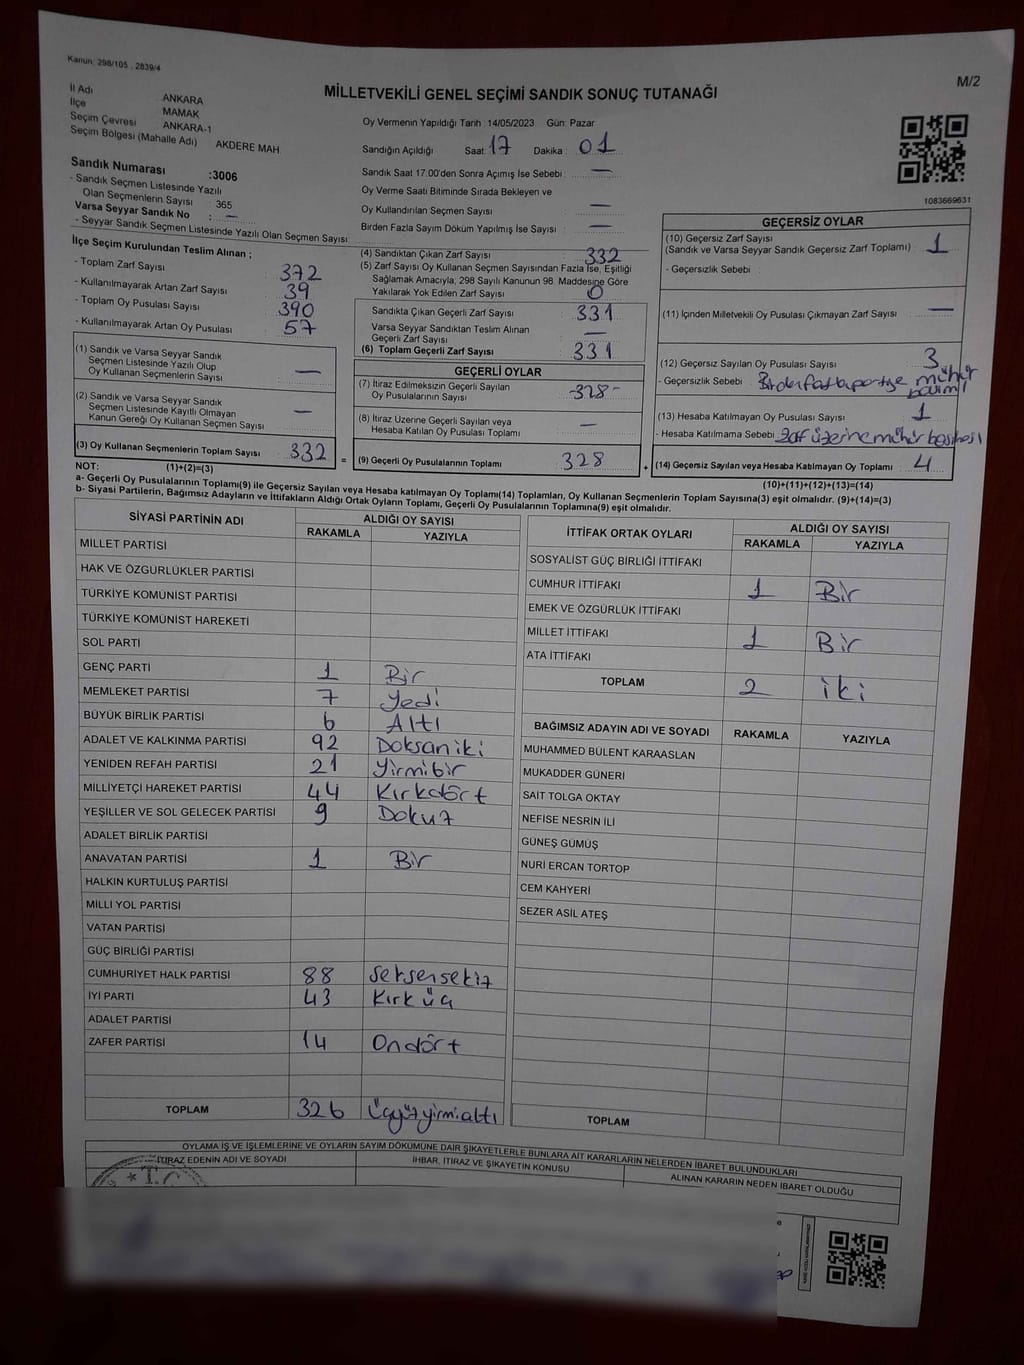 Kanun: 298/105 , 2839/4
M/2
MİLLETVEKİLİ GENEL SEÇİMİ SANDIK SONUÇ TUTANAĞI
İl Adı : ANKARA
İlçe : MAMAK
Seçim Çevresi : ANKARA-1
Seçim Bölgesi (Mahalle Adı) AKDERE MAH
Oy Vermenin Yapıldığı Tarih :14/05/2023 Gün: Pazar
Sandığın Açıldığı Saat: 17 Dakika : 01
Sandık Numarası :3006
- Sandık Seçmen Listesinde Yazılı
Olan Seçmenlerin Sayısı : 365
Varsa Seyyar Sandık No : —
- Seyyar Sandık Seçmen Listesinde Yazılı Olan Seçmen Sayısı:
Sandık Saat 17.00'den Sonra Açımış İse Sebebi : —
Oy Verme Saati Bitiminde Sırada Bekleyen ve
Oy Kullandırılan Seçmen Sayısı : —
Birden Fazla Sayım Döküm Yapılmış İse Sayısı : —
1083669631
İlçe Seçim Kurulundan Teslim Alınan ;
- Toplam Zarf Sayısı : 372
- Kullanılmayarak Artan Zarf Sayısı : 39
- Toplam Oy Pusulası Sayısı : 390
- Kullanılmayarak Artan Oy Pusulası : 57
(1) Sandık ve Varsa Seyyar Sandık
Seçmen Listesinde Yazılı Olup
Oy Kullanan Seçmenlerin Sayısı —
(2) Sandık ve Varsa Seyyar Sandık
Seçmen Listesinde Kayıtlı Olmayan
Kanun Gereği Oy Kullanan Seçmen Sayısı —
(3) Oy Kullanan Seçmenlerin Toplam Sayısı 332
(4) Sandıktan Çıkan Zarf Sayısı : 332
(5) Zarf Sayısı Oy Kullanan Seçmen Sayısından Fazla İse, Eşitliği
Sağlamak Amacıyla, 298 Sayılı Kanunun 98. Maddesine Göre
Yakılarak Yok Edilen Zarf Sayısı : 0
Sandıkta Çıkan Geçerli Zarf Sayısı : 331
Varsa Seyyar Sandıktan Teslim Alınan
Geçerli Zarf Sayısı : —
(6) Toplam Geçerli Zarf Sayısı : 331
GEÇERLİ OYLAR
(7) İtiraz Edilmeksizin Geçerli Sayılan
Oy Pusulalarının Sayısı -328-
(8) İtiraz Üzerine Geçerli Sayılan veya
Hesaba Katılan Oy Pusulası Toplamı —
= (9) Geçerli Oy Pusulalarının Toplamı 328
GEÇERSİZ OYLAR
(10) Geçersiz Zarf Sayısı
(Sandık ve Varsa Seyyar Sandık Geçersiz Zarf Toplamı) : 1
- Geçersizlik Sebebi :
(11) İçinden Milletvekili Oy Pusulası Çıkmayan Zarf Sayısı : —
(12) Geçersiz Sayılan Oy Pusulası Sayısı : 3
- Geçersizlik Sebebi : Birden fazla partiye mühür
(13) Hesaba Katılmayan Oy Pusulası Sayısı : 1
- Hesaba Katılmama Sebebi : Zarf üzerine mühür basılması
+ (14) Geçersiz Sayılan veya Hesaba Katılmayan Oy Toplamı 4
NOT: (1)+(2)=(3)
(10)+(11)+(12)+(13)=(14)
a- Geçerli Oy Pusulalarının Toplamı(9) ile Geçersiz Sayılan veya Hesaba katılmayan Oy Toplamı(14) Toplamları, Oy Kullanan Seçmenlerin Toplam Sayısına(3) eşit olmalıdır. (9)+(14)=(3)
b- Siyasi Partilerin, Bağımsız Adayların ve İttifakların Aldığı Ortak Oyların Toplamı, Geçerli Oy Pusulalarının Toplamına(9) eşit olmalıdır.
SİYASİ PARTİNİN ADI ALDIĞI OY SAYISI
RAKAMLA YAZIYLA
MİLLET PARTİSİ
HAK VE ÖZGÜRLÜKLER PARTİSİ
TÜRKİYE KOMÜNİST PARTİSİ
TÜRKİYE KOMÜNİST HAREKETİ
SOL PARTİ
GENÇ PARTİ 1 Bir
MEMLEKET PARTİSİ 7 Yedi
BÜYÜK BİRLİK PARTİSİ 6 Altı
ADALET VE KALKINMA PARTİSİ 92 Doksaniki
YENİDEN REFAH PARTİSİ 21 Yirmibir
MİLLİYETÇİ HAREKET PARTİSİ 44 Kırkdört
YEŞİLLER VE SOL GELECEK PARTİSİ 9 Dokuz
ADALET BİRLİK PARTİSİ
ANAVATAN PARTİSİ 1 Bir
HALKIN KURTULUŞ PARTİSİ
MİLLİ YOL PARTİSİ
VATAN PARTİSİ
GÜÇ BİRLİĞİ PARTİSİ
CUMHURİYET HALK PARTİSİ 88 Seksensekiz
İYİ PARTİ 43 Kırküç
ADALET PARTİSİ
ZAFER PARTİSİ 14 Ondört
TOPLAM 326 Üçyüzyirmialtı
İTTİFAK ORTAK OYLARI ALDIĞI OY SAYISI
RAKAMLA YAZIYLA
SOSYALİST GÜÇ BİRLİĞİ İTTİFAKI
CUMHUR İTTİFAKI 1 Bir
EMEK VE ÖZGÜRLÜK İTTİFAKI
MİLLET İTTİFAKI 1 Bir
ATA İTTİFAKI
TOPLAM 2 iki
BAĞIMSIZ ADAYIN ADI VE SOYADI RAKAMLA YAZIYLA
MUHAMMED BÜLENT KARAASLAN
MUKADDER GÜNERİ
SAİT TOLGA OKTAY
NEFİSE NESRİN İLİ
GÜNEŞ GÜMÜŞ
NURİ ERCAN TORTOP
CEM KAHYERİ
SEZER ASİL ATEŞ
TOPLAM
OYLAMA İŞ VE İŞLEMLERİNE VE OYLARIN SAYIM DÖKÜMÜNE DAİR ŞİKAYETLERLE BUNLARA AİT KARARLARIN NELERDEN İBARET BULUNDUKLARI
İTİRAZ EDENİN ADI VE SOYADI İHBAR, İTİRAZ VE ŞİKAYETİN KONUSU ALINAN KARARIN NEDEN İBARET OLDUĞU
T.C.